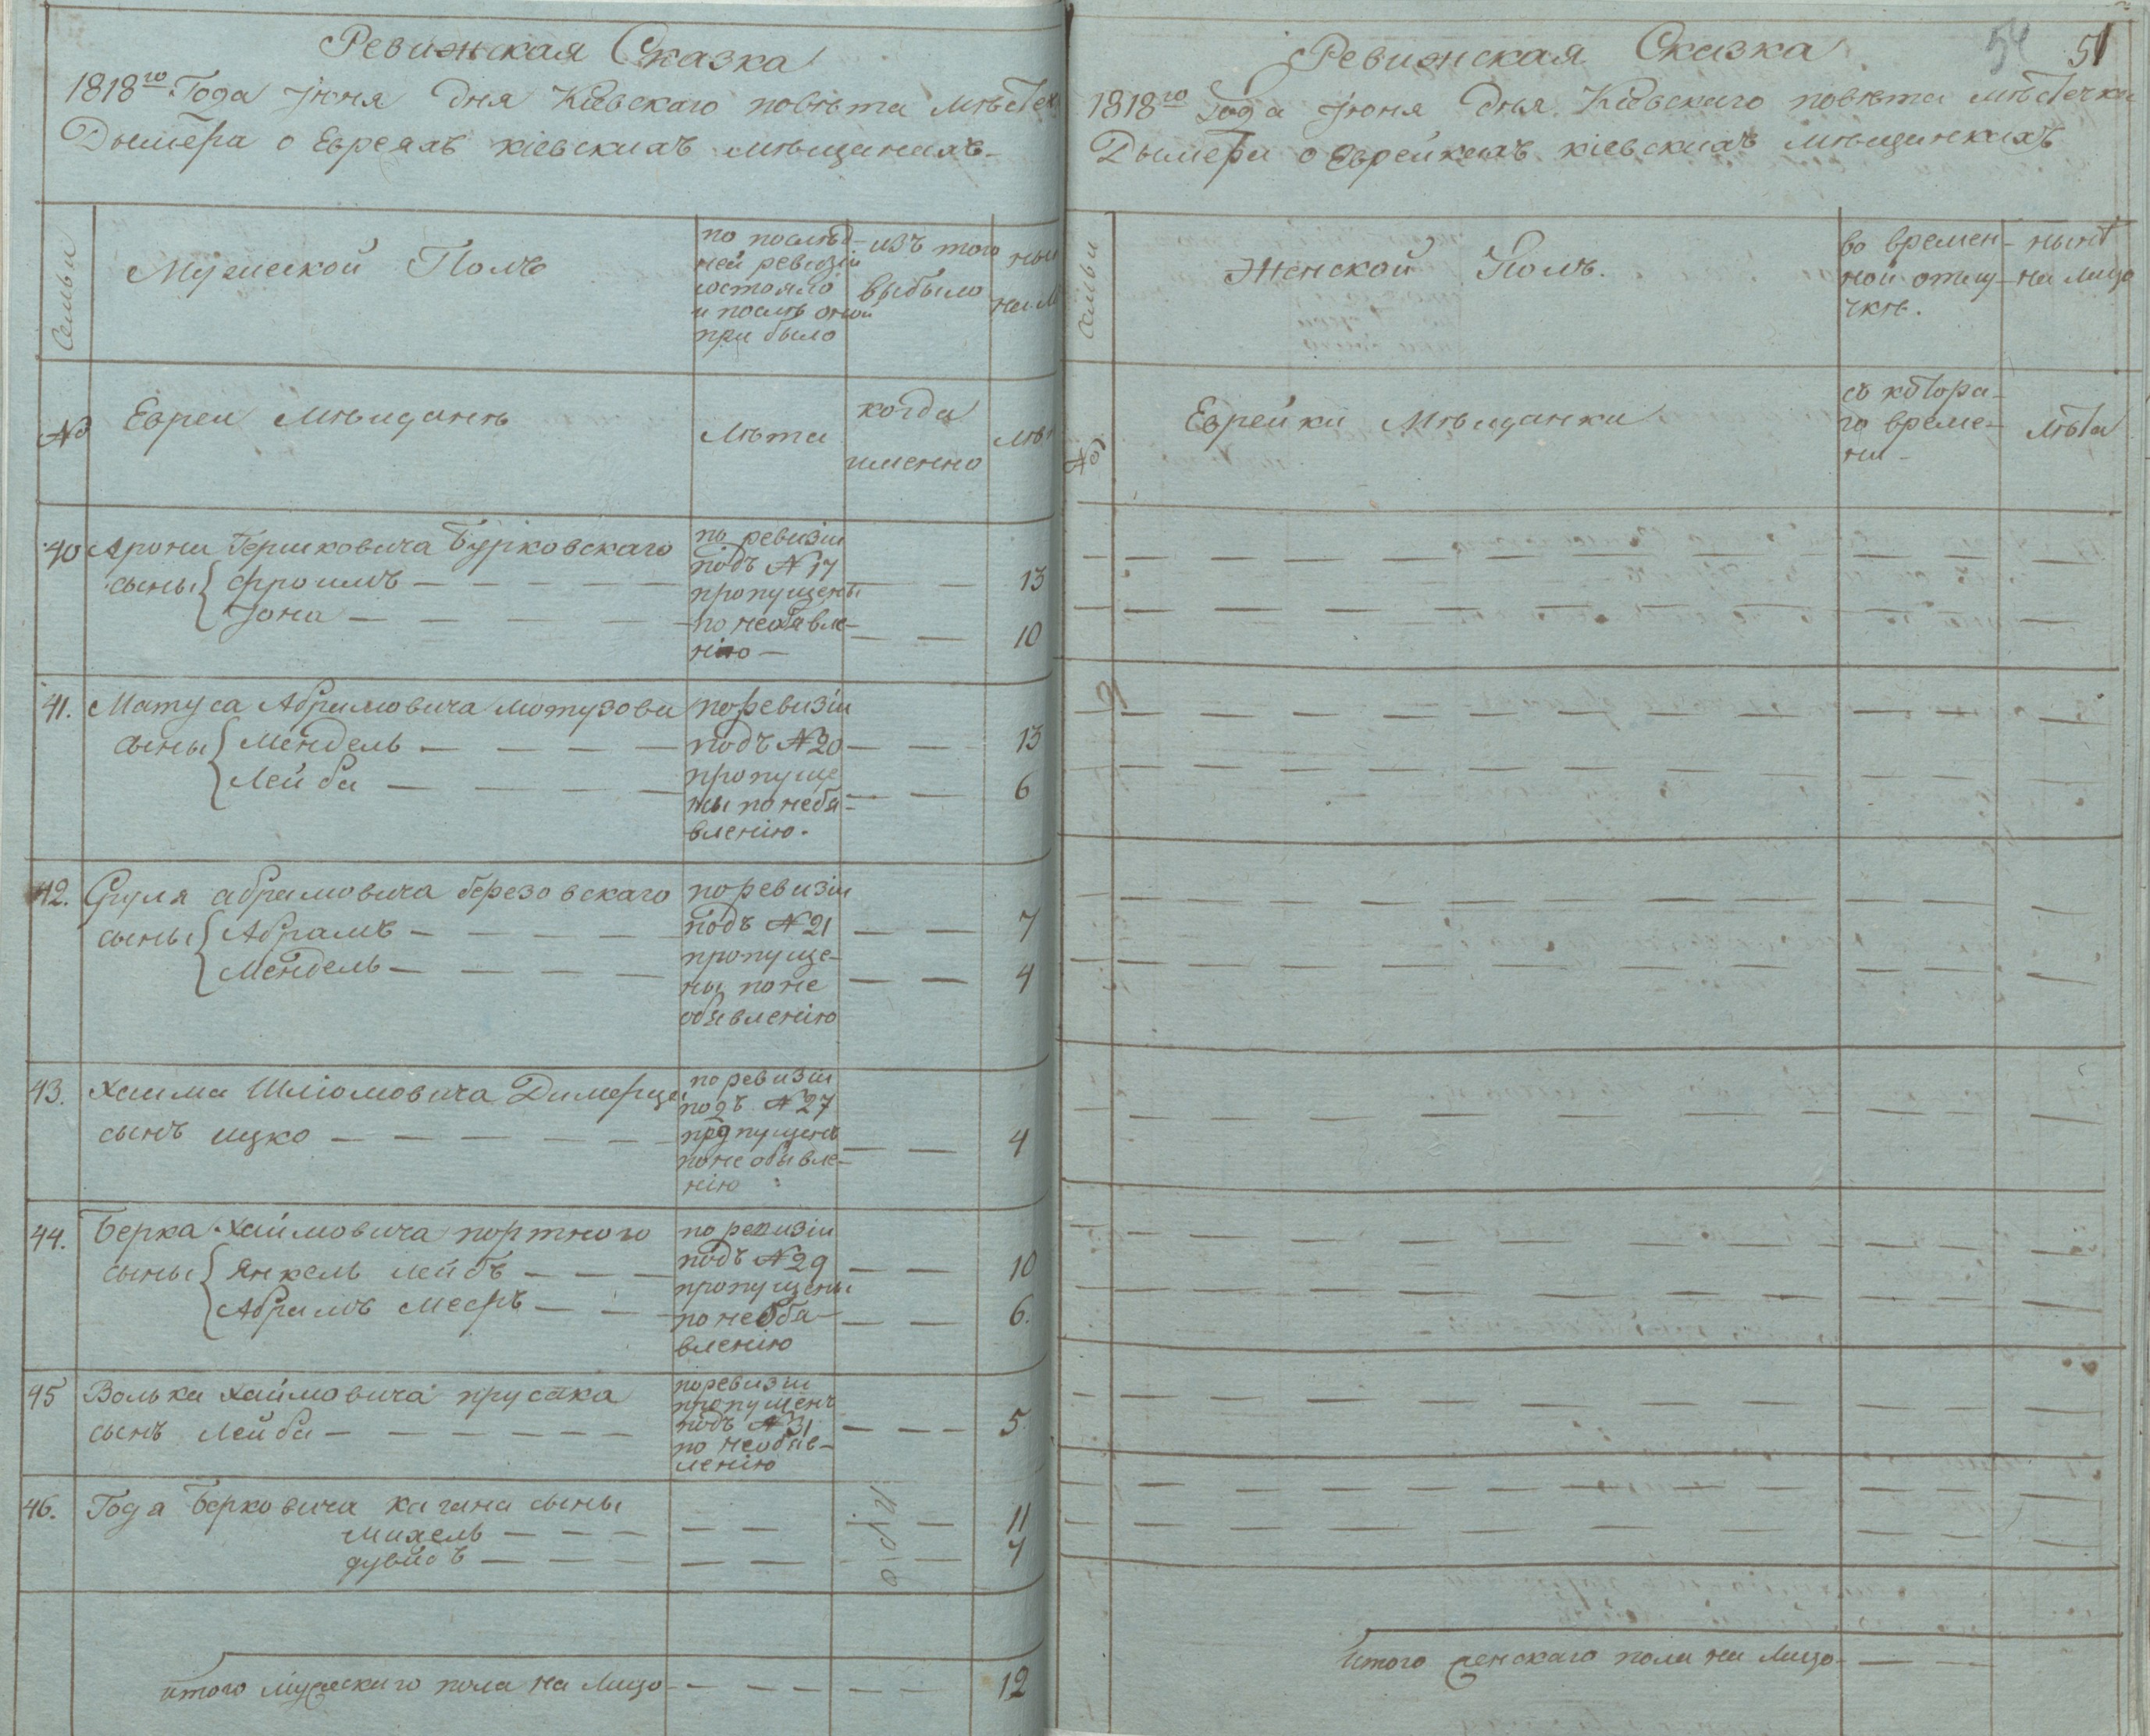 Ревижская Сказка
1818го Года Июня дня Кіевскаго повѣта мѣстеч
Дымера о Евреяхъ кіевскихъ мѣщанахъ
Семьи
Мужеской Полъ
по послѣд-
ней ревизіи
состояло
и послѣ оной
при было
изъ того
выбыло
ны
на ли
№
Евреи мѣщанѣ
Лѣта
когда
именно
лѣт
40 Арона Гершковича Бурковскаго
сыны Фроимъ
Иона
по ревизіи
подъ №17
пропущены
по необявле-
нію
13
10
41. Матуса Абрамовича мотузова
сыны Мендель
Лейба
по ревизіи
подъ №20
пропуще
ны по небя-
влению.
13
6
42. Сруля абрамовича березовскаго
сыны Абрамъ
Мендель
по ревизіи
подъ №21
пропуще-
ны по не
обявленію
7
4
43. Хаима Шліомовича Димерца
сынъ ицко
по ревизіи
подъ №27
пропущенъ
по не обявле-
нію
4
44. Берка Хаймовича портного
сыны Янкель лейбъ
Абрамъ меєръ
по ревизіи
подъ №29
пропущены
по необя-
вленію
10
6.
45 Волька хаймовича прусака
сынъ лейба
по ревизіи
пропущенъ
подъ №31
по необяв-
ленію
5
46. Годя Берковича кагана сыны
Михель
дувидъ
11
7
итого мужескаго пола на лицо
12
Ревижская Сказка
54
51
1818го года Июня дня Кіевскаго повѣта мѣстечка
Дымера о Еврейкахъ кіевскихъ мѣщанкахъ
семьи
Женской Полъ.
во времен-
ной отлу-
чкѣ.
нынѣ
на лицо
№
Еврейки Мѣщанки
съ котора-
го време-
ни
лѣта
Итого женскаго пола на лицо